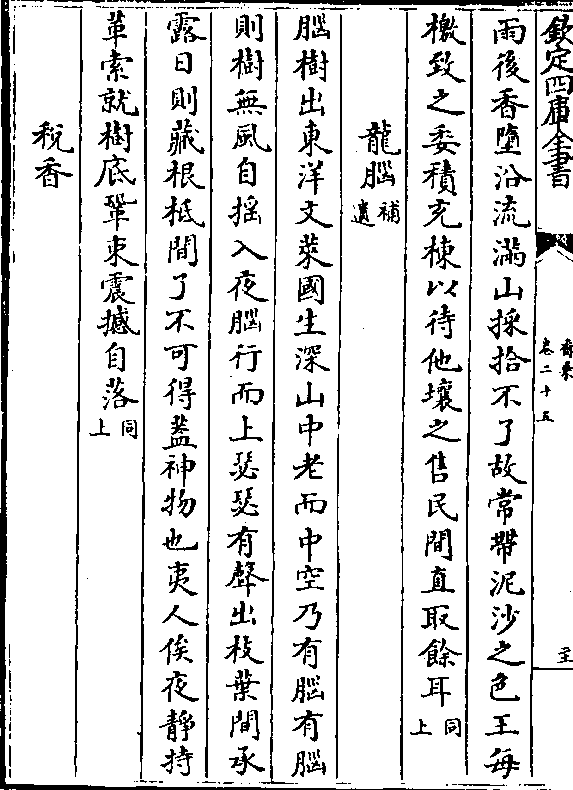 欽定四庫全書
香乘
卷二十五
雨後香墮沿流滿山採拾不了故常帶泥沙之色王每
檄致之委積充棟以待他壤之售民間直取餘耳同上
龍腦補遺
腦樹出東洋文萊國生深山中老而中空乃有腦有腦
則樹無風自搖入夜腦行而上瑟瑟有聲出枝葉間承
露日則藏根柢間了不可得葢神物也夷人俟夜靜持
革索就樹底鞏束震撼自落同上
稅香